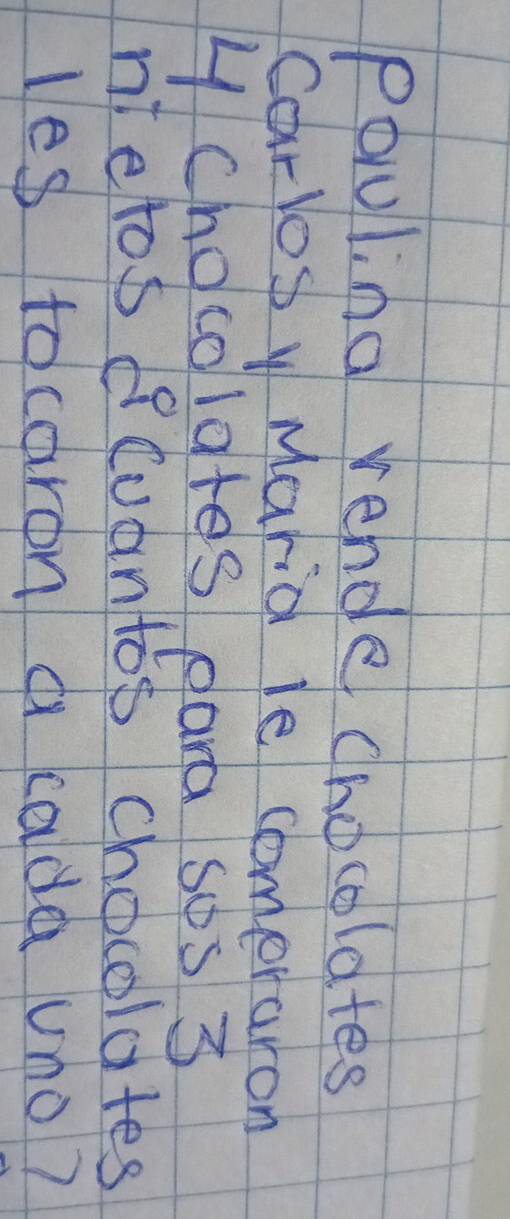 Paulina vende chocolates
Carlos y Maria le compraron
4 chocolates para sus 3
nietos ¿Cuantos chocolates
les tocaron a cada uno?